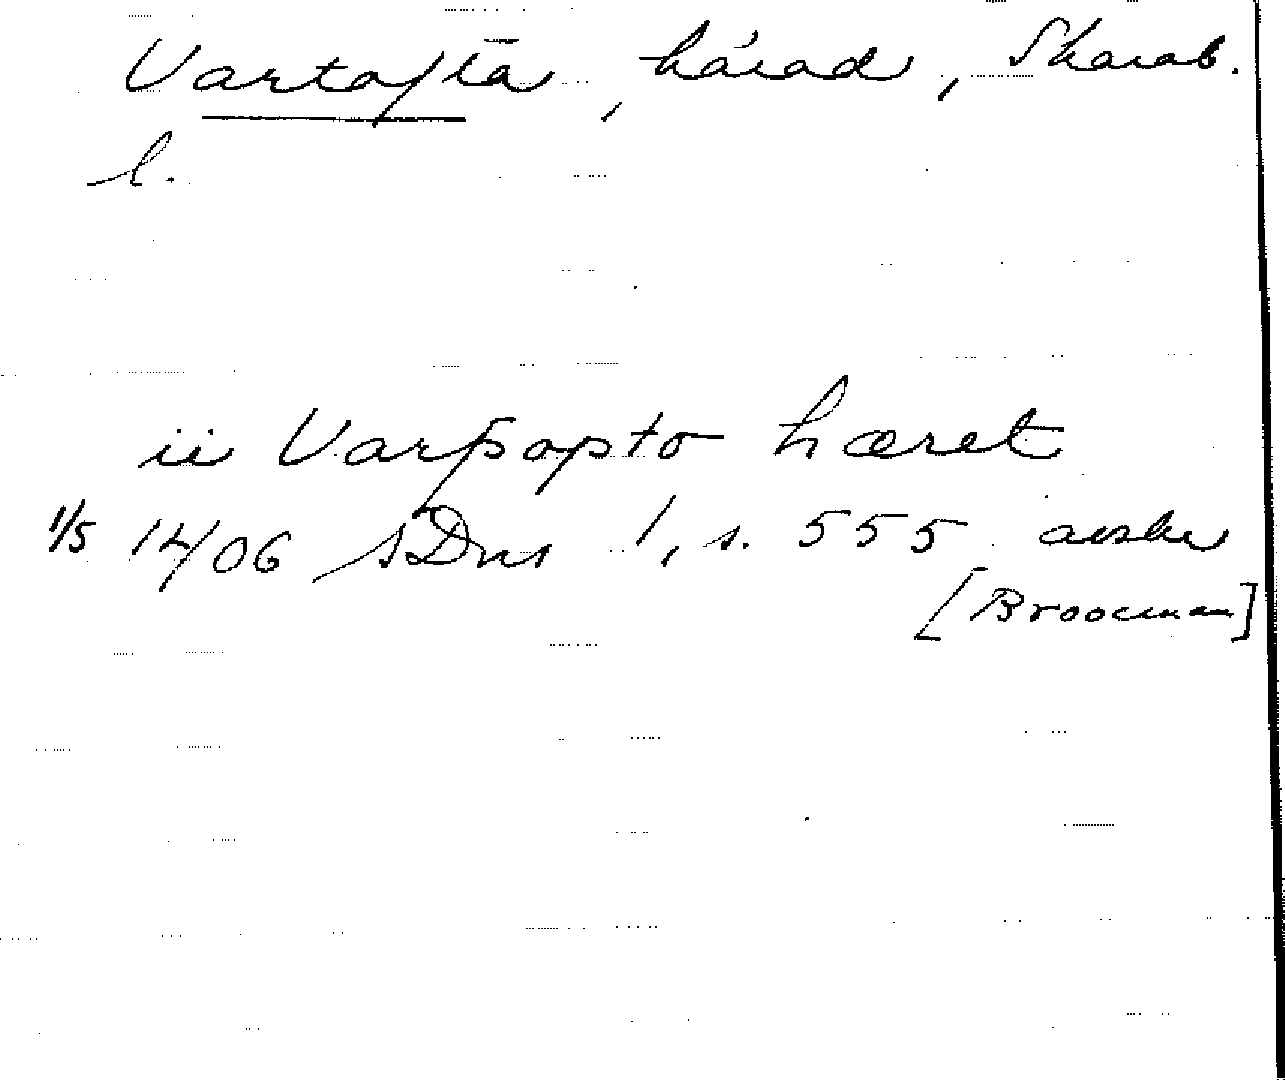 Vartofta, härad, Skarab.
l.
ii Varþopto hæret
1/5 1406 SDns 1, s. 555 avskr
[Brooman]